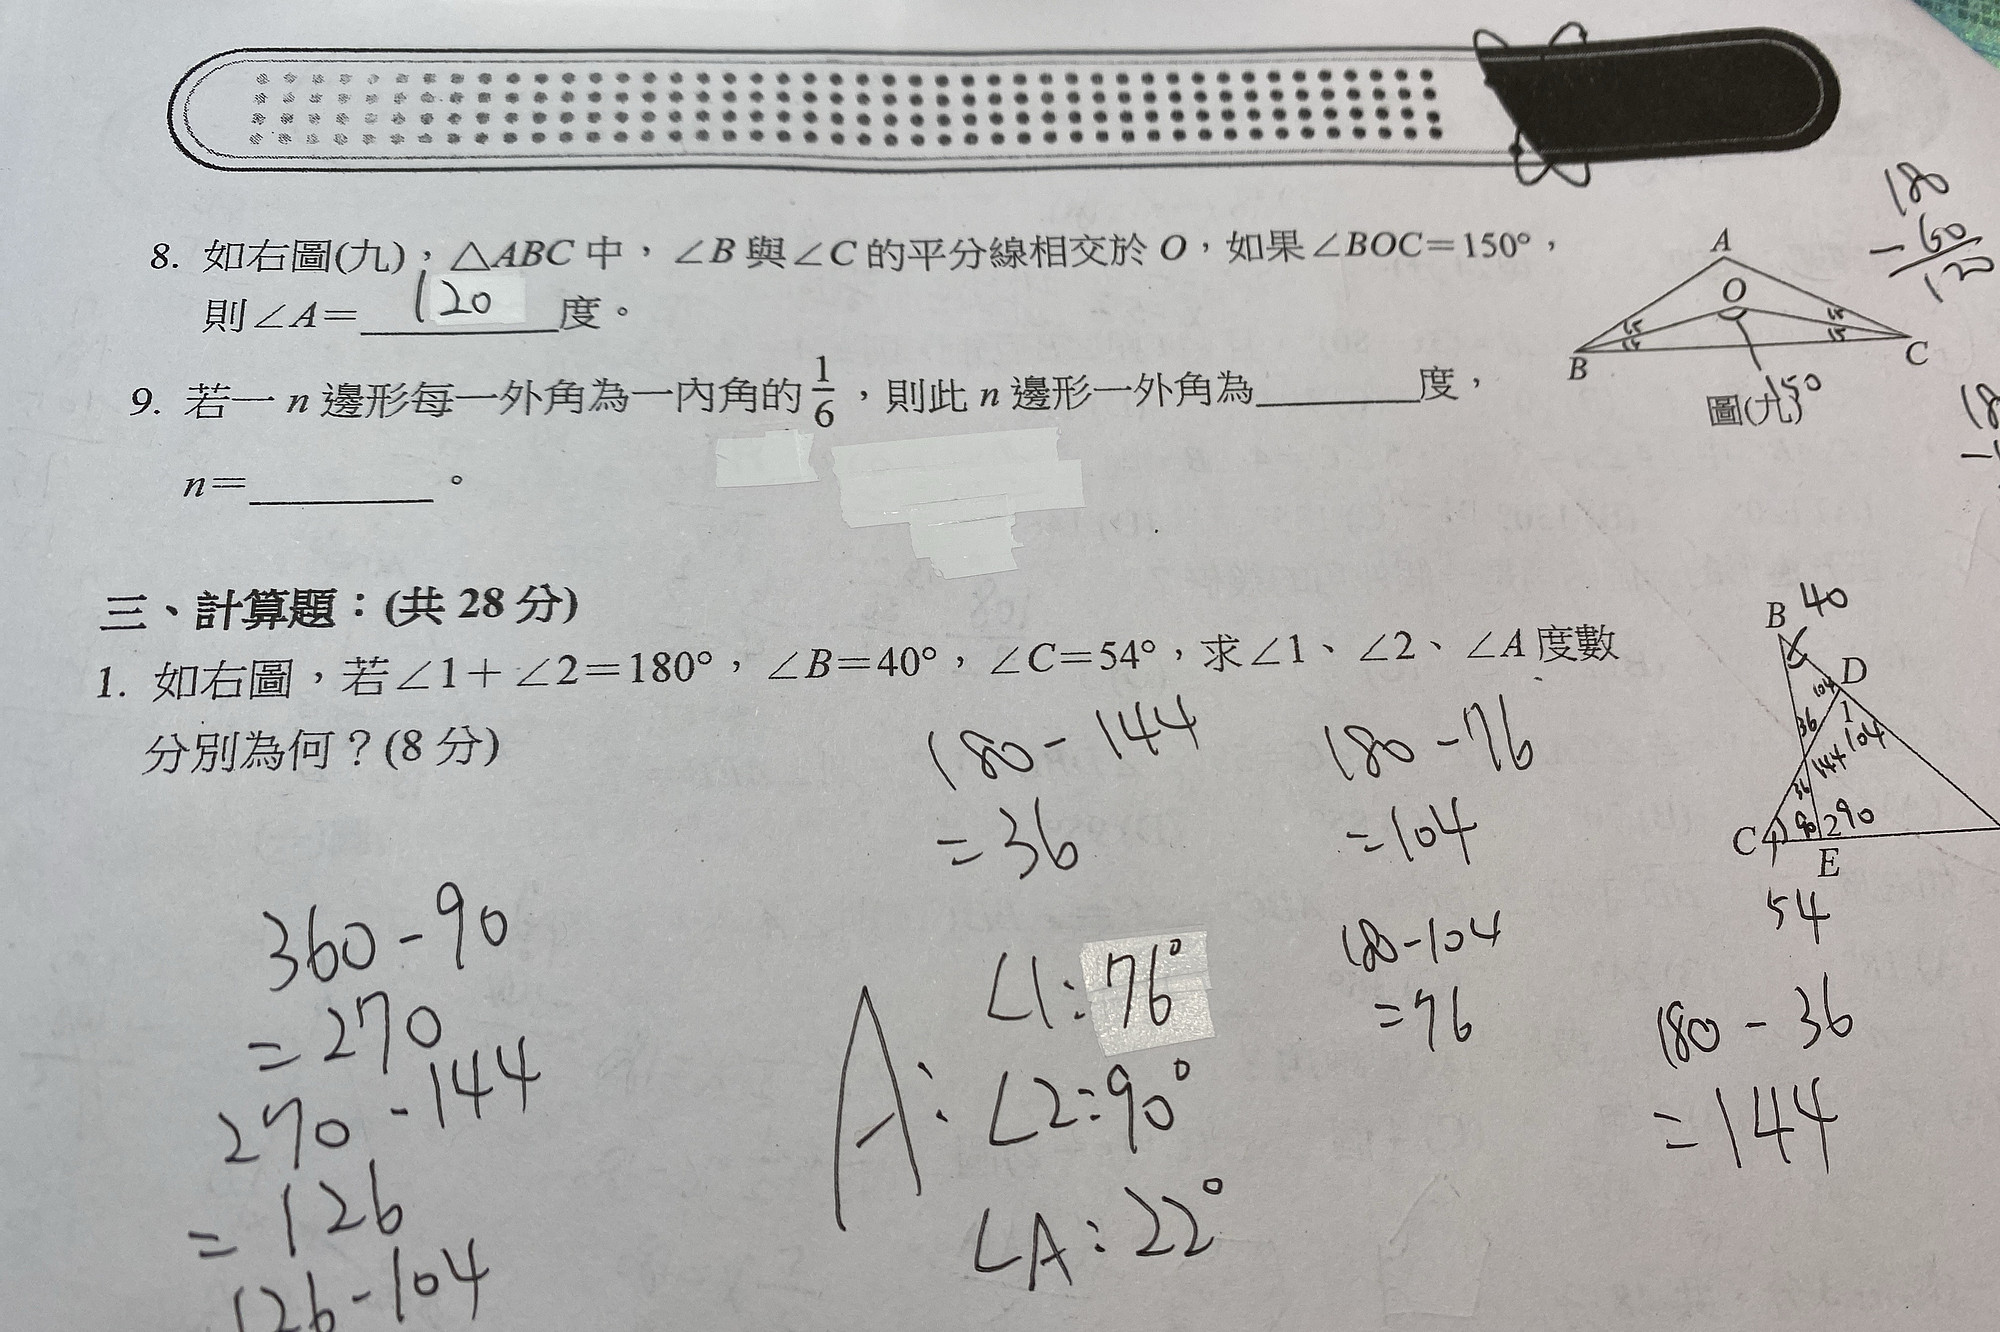 8. 如右圖(九)，△ABC 中，∠B 與∠C 的平分線相交於 O，如果∠BOC=150°，
則∠A= 120 度。
A
O
15
15
15
15
B
C
150°
圖(九)
180
-60
120
9. 若一 n 邊形每一外角為一內角的 1/6，則此 n 邊形一外角為________度，
n=________。
三、計算題：(共 28 分)
1. 如右圖，若∠1+∠2=180°，∠B=40°，∠C=54°，求∠1、∠2、∠A 度數
分別為何？(8 分)
B 40
D
104
1
36
104
144
36
C
90
2 90
E
54
180-144
=36
180-76
=104
180-104
=76
180-36
=144
360-90
=270
270-144
=126
126-104
A:
∠1:76°
∠2:90°
∠A:22°